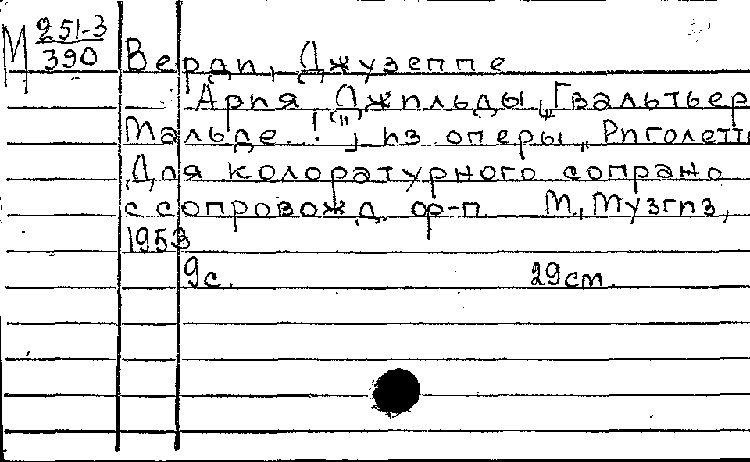 М 251-3
390
Верди, Джузеппе
Ария Джильды „Гвальтьер
Мальде...!" из оперы „Риголетто
Для колоратурного сопрано
с сопровожд. ф-п М., Музгиз,
1953
9с. 29см.